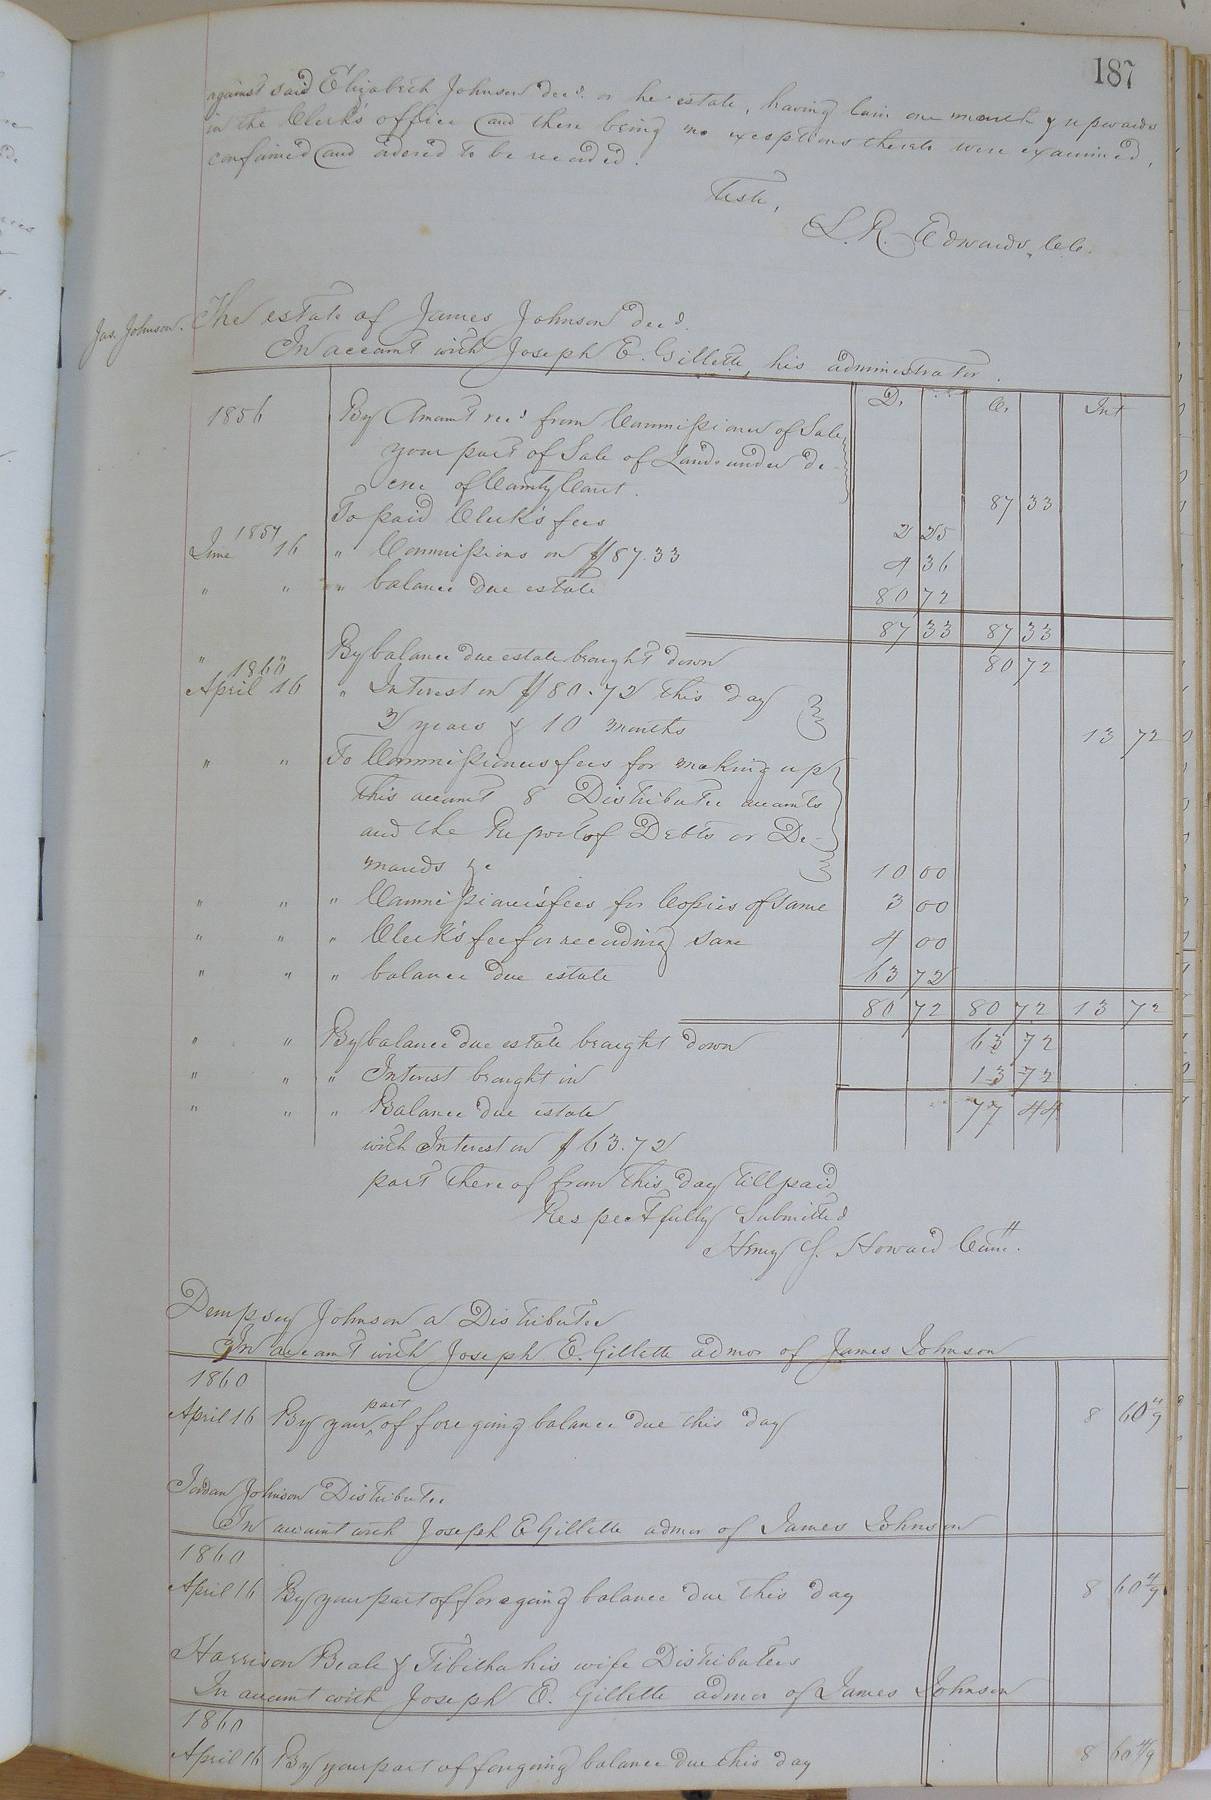 187
against said Elizabeth Johnson decd. or her estate, having lain one month & upwards
in the Clerk's office and there being no exceptions thereto were examined,
confirmed and ordered to be recorded.
Teste,
L. R. Edwards, C.C.
Jas. Johnson. The estate of James Johnson decd.
In account with Joseph E. Gillette, his administrator.
D. Cr. Int
1856 By Amount recd from Commissioner of Sale
your part of Sale of Lands under de-
cree of County Court. 87 33
To paid Clerk's fees 2 25
1857
June 16 " Commissions on $87.33 4 36
" " " balance due estate 80 72
87 33 87 33
" " By balance due estate brought down 80 72
1860
April 16 " Interest on $80.72 this day
2 years & 10 months 13 72
" " To Commissioners fees for making up
this account 8 Distributee accounts
and the Report of Debts or De-
mands &c 10 00
" " " Commissioner's fees for Copies of Same 3 00
" " " Clerk's fee for recording same 4 00
" " " balance due estate 63 72
80 72 80 72 13 72
" " By balance due estate brought down 63 72
" " " Interest brought in 13 72
" " " Balance due estate 77 44
with Interest on $63.72
part thereof from this day till paid
Respectfully Submitted
Henry J. Howard Comr.
Dempsey Johnson a Distributee
In account with Joseph E. Gillette admor of James Johnson
1860
April 16 By your part of fore going balance due this day 8 60 4/9
Jordan Johnson Distributee
In account with Joseph E Gillette admor of James Johnson
1860
April 16 By your part of foregoing balance due this day 8 60 4/9
Harrison Beale & Tibitha his wife Distributees
In account with Joseph E. Gillette admor of James Johnson
1860
April 16 By your part of forgoing balance due this day 8 60 4/9